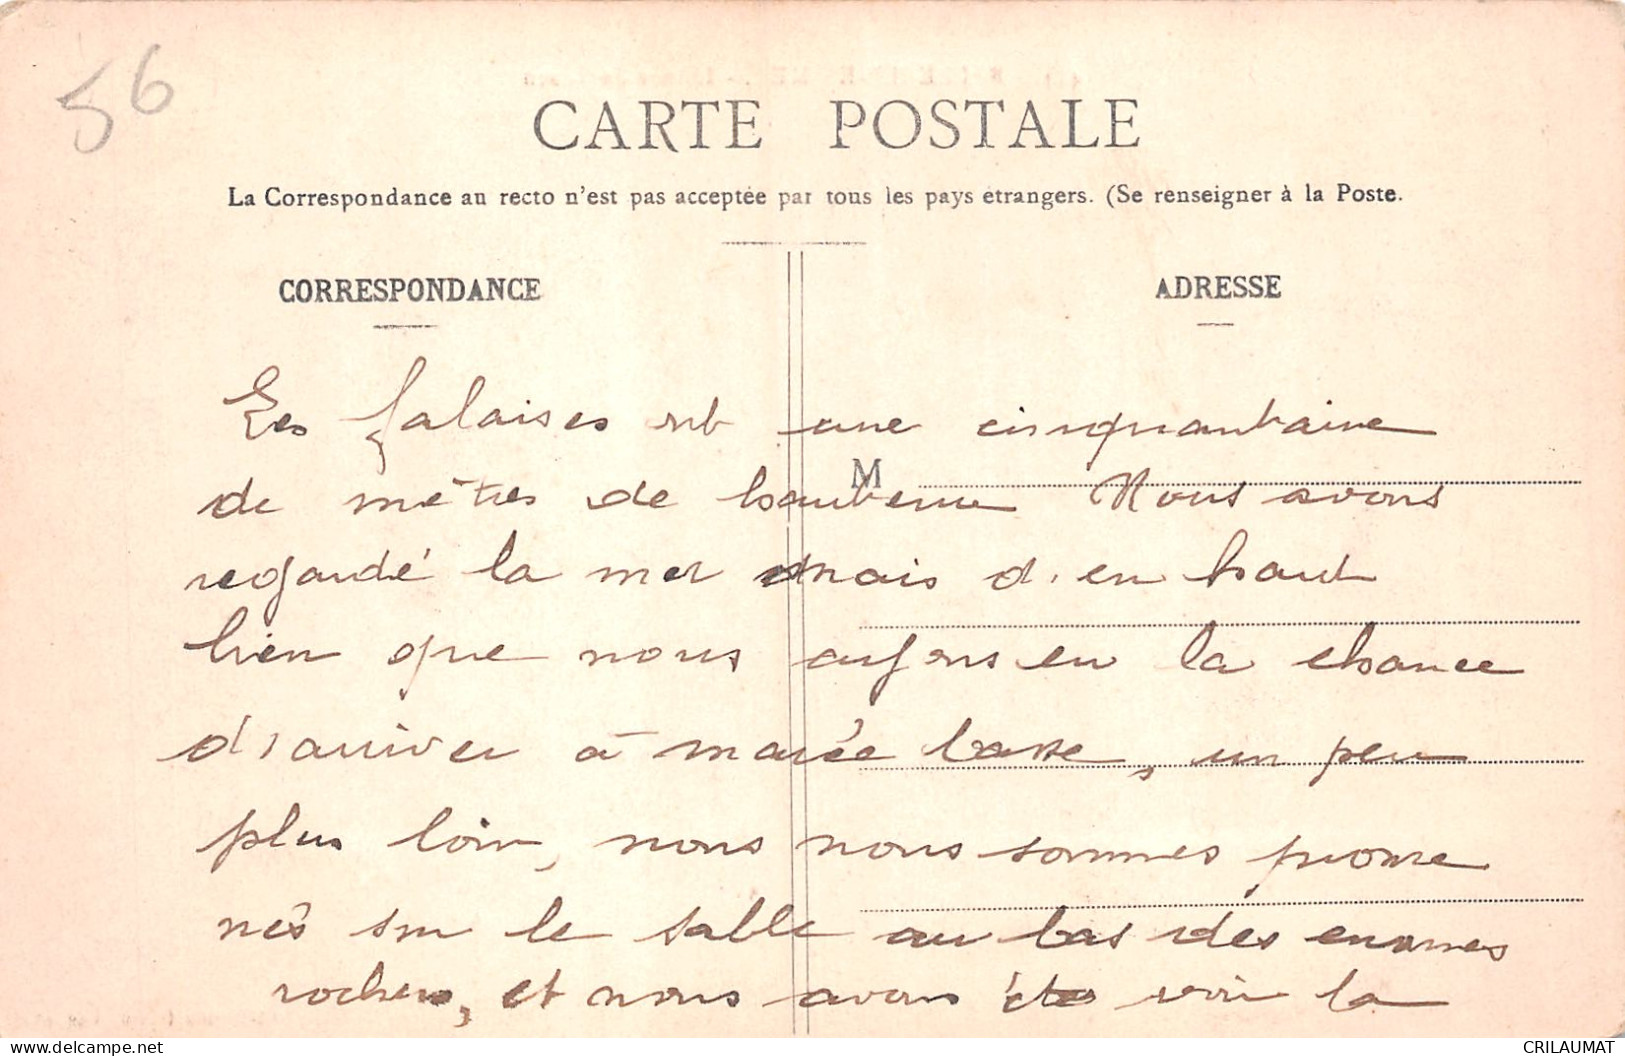 56
CARTE POSTALE
La Correspondance au recto n'est pas acceptée par tous les pays étrangers. (Se renseigner à la Poste.
CORRESPONDANCE
ADRESSE
M
Les falaises ont une cinquantaine
de mètres de hauteur Nous avons
regardé la mer mais d'en haut
bien que nous ayons eu la chance
d'arriver à marée basse, un peu
plus loin, nous nous sommes prome
nés sur le sable au bas des enormes
rochers, et nous avons été voir la
CRILAUMAT